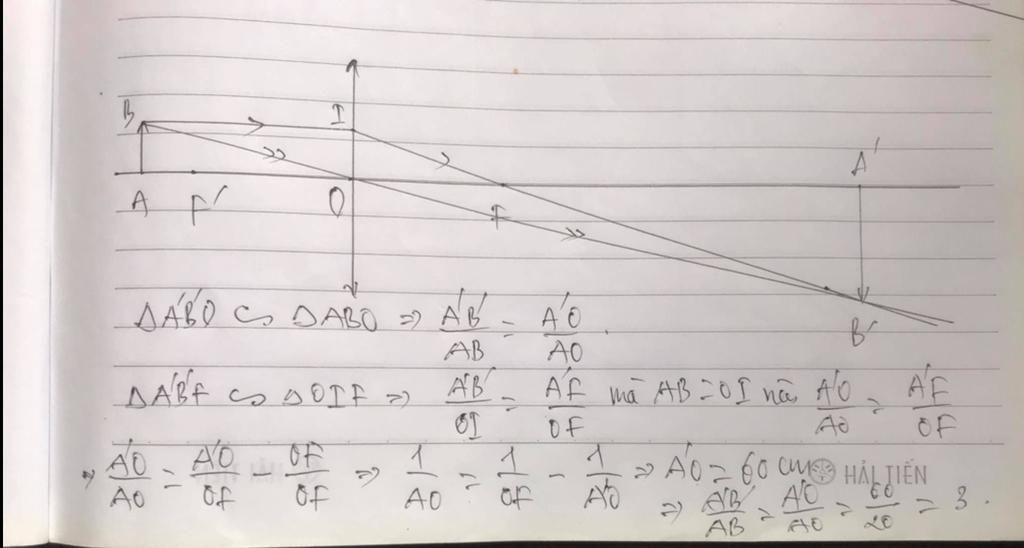 B I A'
A F' O F
B'
ΔA'B'O ∽ ΔABO => A'B'/AB = A'O/AO.
ΔA'B'F ∽ ΔOIF => A'B'/OI = A'F/OF mà AB = OI nên A'O/AO = A'F/OF
=> A'O/AO = A'O/OF - OF/OF => 1/AO = 1/OF - 1/A'O => A'O = 60 cm
HẢI TIẾN
=> A'B'/AB = A'O/AO = 60/20 = 3.